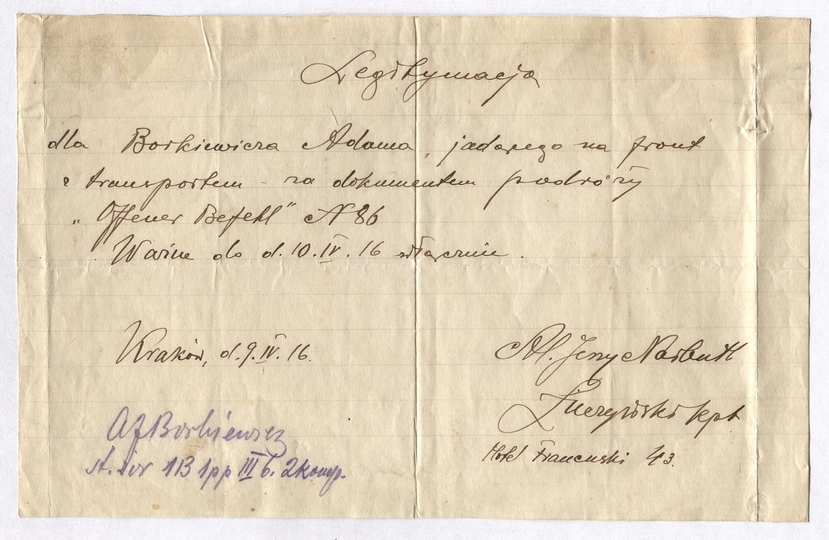 Legitymacja
dla Borkiewicza Adama, jadącego na front
z transportem za dokumentem podróży
„Offener Befehl" N 86
Ważne do d. 10.IV.16 włącznie.
Kraków, d. 9.IV.16.
Jerzy Narbutt
kpt
Hotel Francuski 43.
AJBorkiewicz
1B 1pp III b. 2komp.